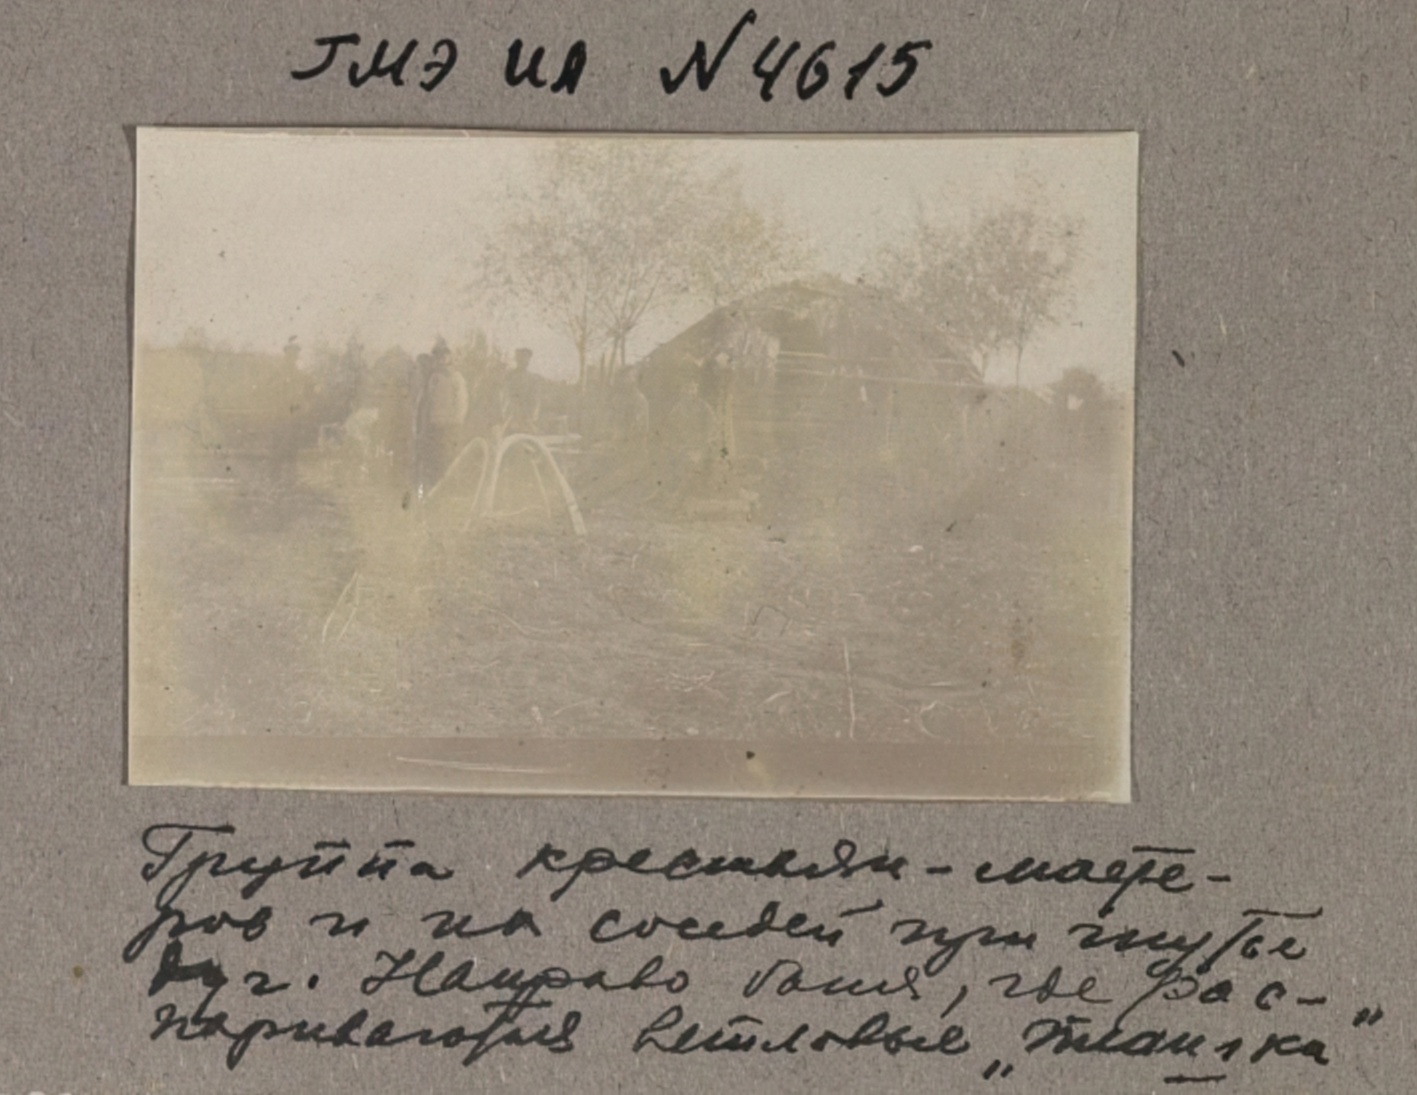 ГМЭ ИЛ N 4615
Группа крестьян-масте-
ров и их соседей при гнутье
дуг. Направо баня, где рас-
париваются ветловые „планка“